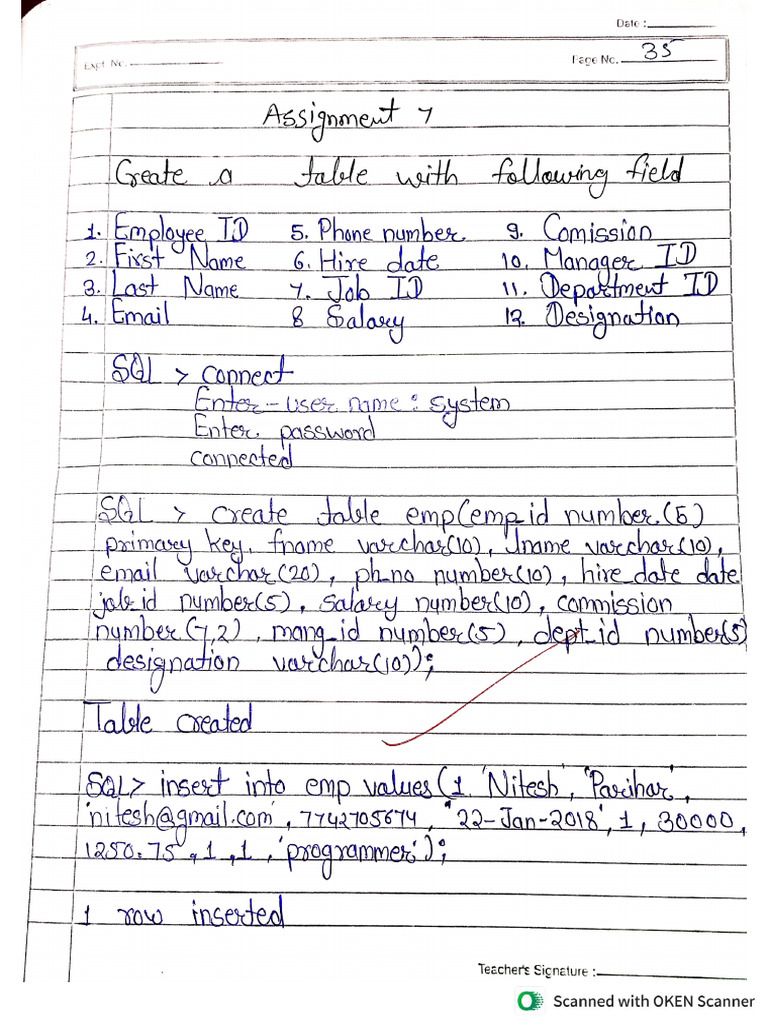 Date :
Expt. No.
Page No. 35
Assignment 7
Create a table with following field
1. Employee ID 5. Phone number 9. Comission
2. First Name 6. Hire date 10. Manager ID
3. Last Name 7. Job ID 11. Department ID
4. Email 8 Salary 12. Designation
SQL > connect
Enter-user name : system
Enter. password
connected
SQL > create table emp(emp_id number.(5)
primary key, fname varchar(10), lname varchar(10),
email varchar(20), ph_no number(10), hire_date date
job_id number(5), salary number(10), commission
number(7,2), mang_id number(5), dept_id number(5)
designation varchar(10));
Table created
SQL> insert into emp values(1. 'Nitesh', 'Parihar',
'nitesh@gmail.com', 7742705674, '22-Jan-2018', 1, 30000,
1250.75, 1, 1, 'programmer');
1 row inserted
Teacher's Signature :
Scanned with OKEN Scanner